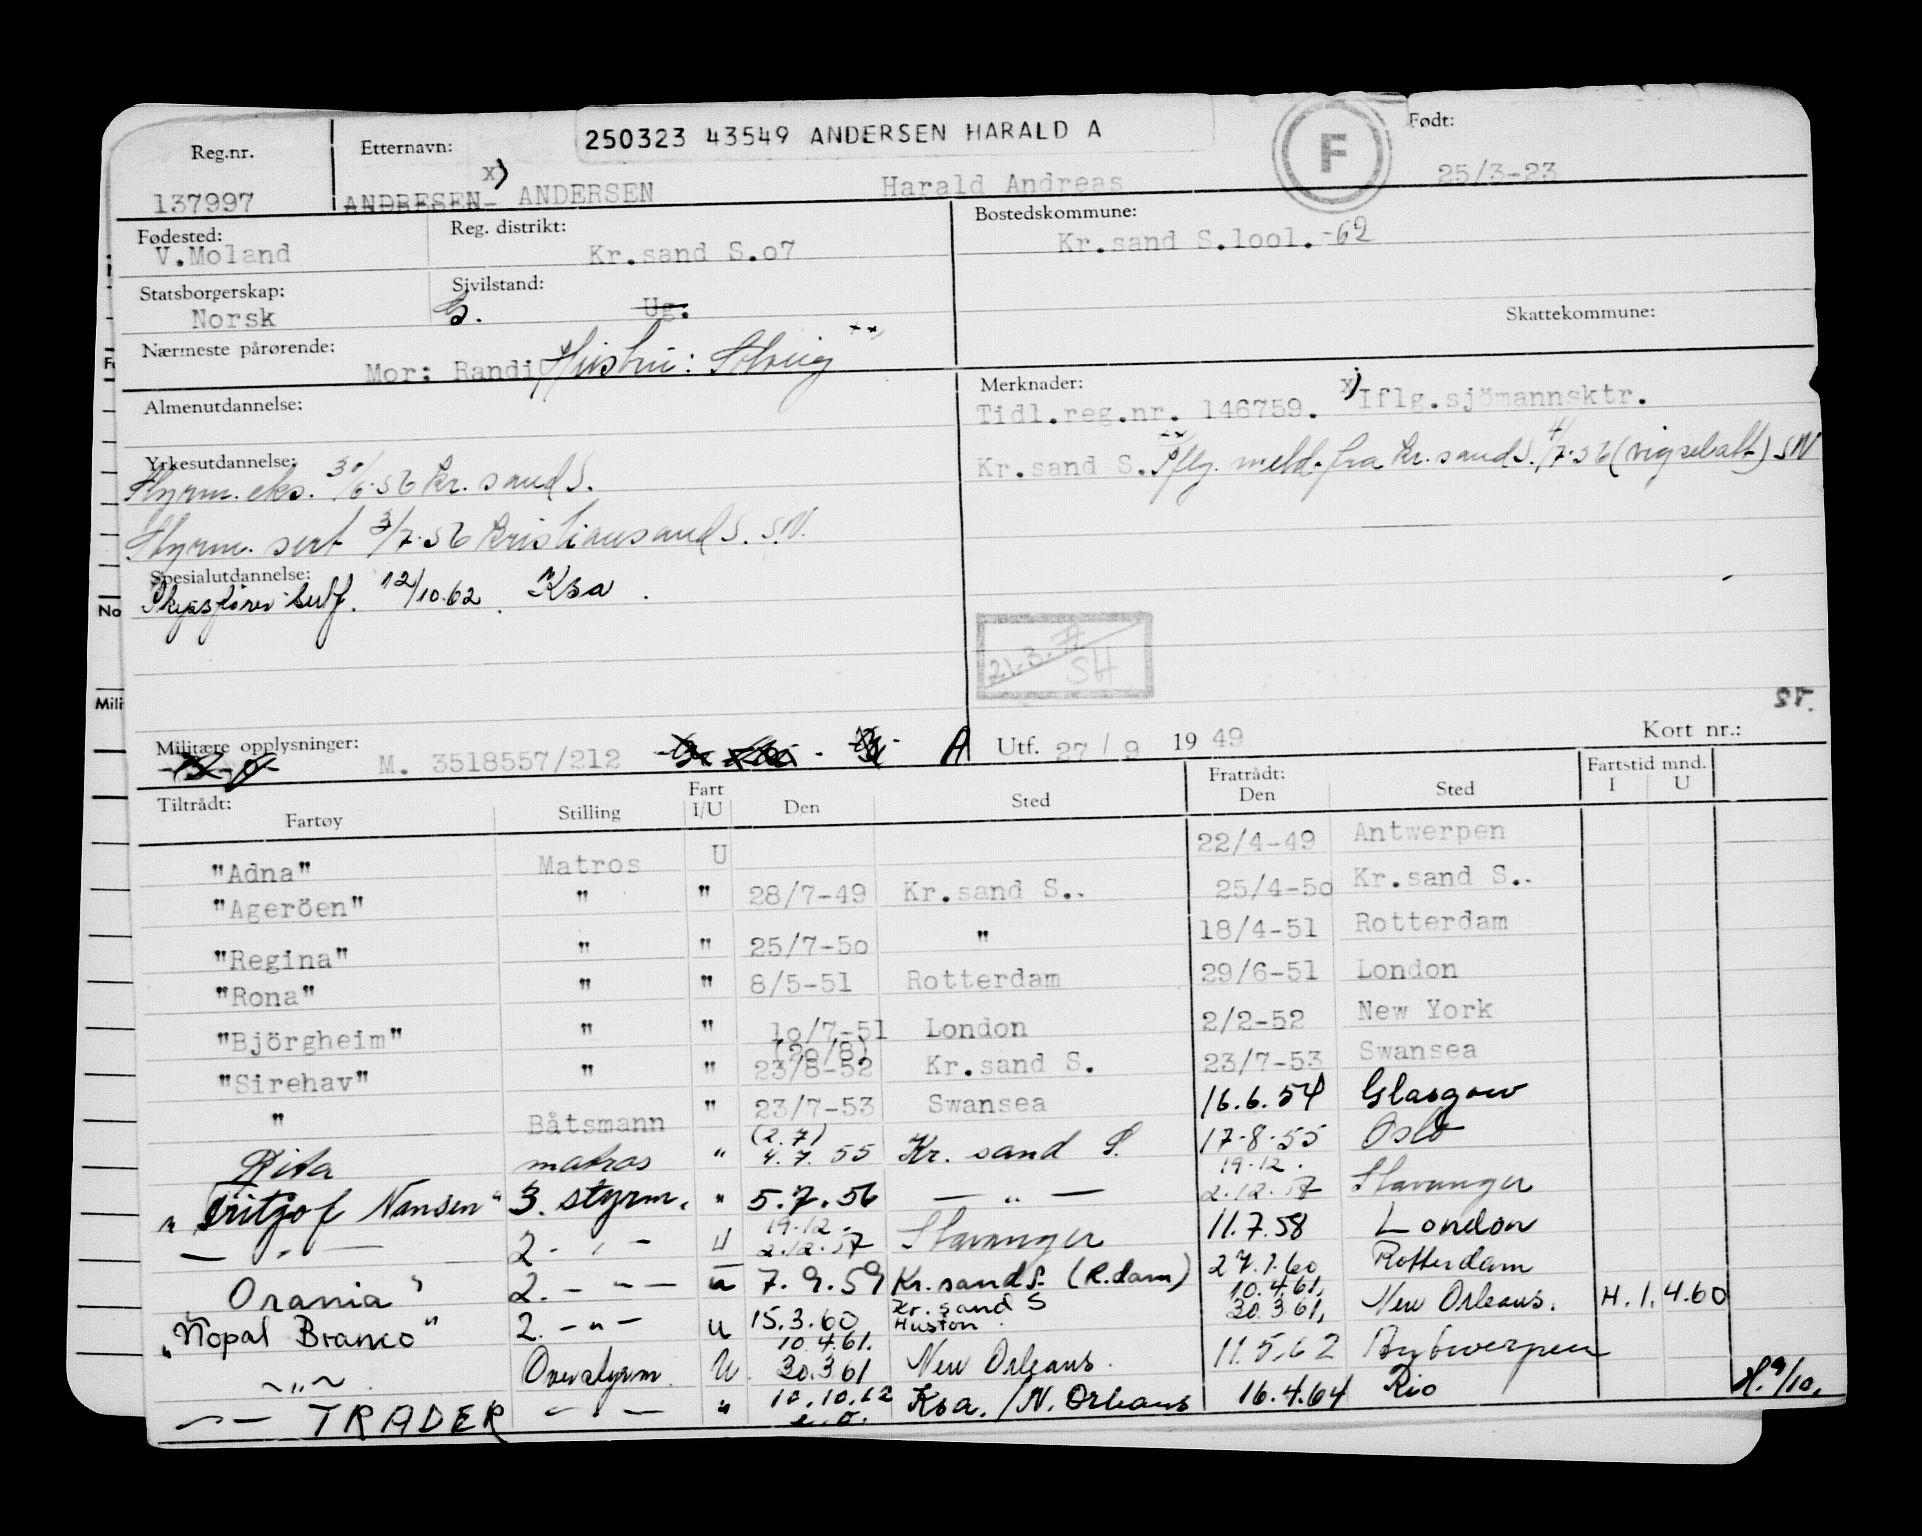 250323 43549 ANDERSEN HARALD A
Reg.nr. Etternavn: F Født:
137997 ANDRESEN- x) ANDERSEN Harald Andreas 25/3-23
Fødested: Reg. distrikt: Bostedskommune:
V.Moland Kr.sand S.o7 Kr.sand S.1001.-62
Statsborgerskap: Sivilstand: Skattekommune:
Norsk G. Ug.
Nærmeste pårørende: Mor: Randi Hustru: Solveig xx)
Almenutdannelse: Merknader:
Tidl.reg.nr. 146759. x) Iflg.sjömannsktr.
Kr.sand S. xx Iflg. meld. fra Kr.sand S. 4/7-56 (vigselatt.) SN
Yrkesutdannelse:
Styrm. eks. 30/6-56 Kr. sand S.
Styrm. sert 3/7-56 Kristiansand S. S.N.
Spesialutdannelse:
Skipsfører sertf. 12/10.62. Ksa.
21.3.77 SH
Militære opplysninger: M. 3518557/212 A Utf. 27/9 1949 Kort nr.:
Tiltrådt: Fratrådt: Fartstid mnd.
Fartøy Stilling Fart I/U Den Sted Den Sted I U
"Adna" Matros U 22/4-49 Antwerpen
"Ageröen" " " 28/7-49 Kr.sand S.. 25/4-5o Kr.sand S..
"Regina" " " 25/7-5o " 18/4-51 Rotterdam
"Rona" " " 8/5-51 Rotterdam 29/6-51 London
"Björgheim" " " 1o/7-51 London 2/2-52 New York
"Sirehav" " " (2o/8) 23/8-52 Kr.sand S. 23/7-53 Swansea
" Båtsmann " 23/7-53 Swansea 16.6.54 Glasgow
Rita matros " (2.7) 4.7.55 Kr. sand S. 17-8-55 Oslo
"Fritjof Nansen" 3. styrm. " 5.7.56 — " — 19.12. 2.12.57 Stavanger
— " — 2. - " - U 19.12. 2.12.57 Stavanger 11.7.58 London
Orania" 2. - " - u 7.9.59 Kr.sand S. (R.dam) 27.1.60 Rotterdam
"Nopal Branco" 2. - " - u 15.3.60 Kr. sand S Huston. 10.4.61. 30.3.61, New Orleans. H. 1. 4.60
~ " ~ Overstyrm. U. 10.4.61. 30.3.61 New Orleans. 11.5.62 Antwerpen
— " — TRADER — " — " 10.10.62 e.o. Ksa. /N. Orleans 16.4.64 Rio H. 9/10.